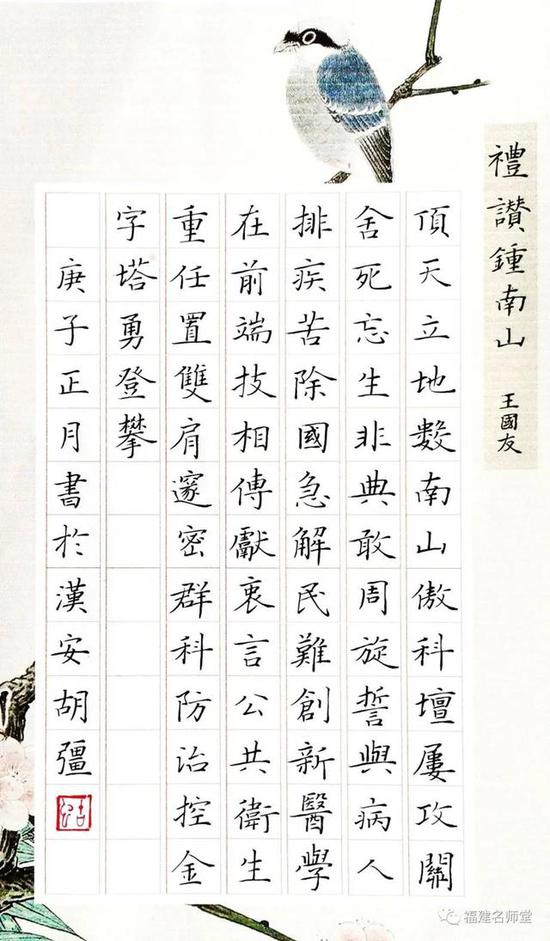 禮讃鍾南山
王國友
頂天立地數南山傲科壇屢攻關
舍死忘生非典敢周旋誓與病人
排疾苦除國急解民難創新醫學
在前端技相傳獻衷言公共衛生
重任置雙肩邃密群科防治控金
字塔勇登攀
庚子正月書於漢安胡彊
福建名师堂